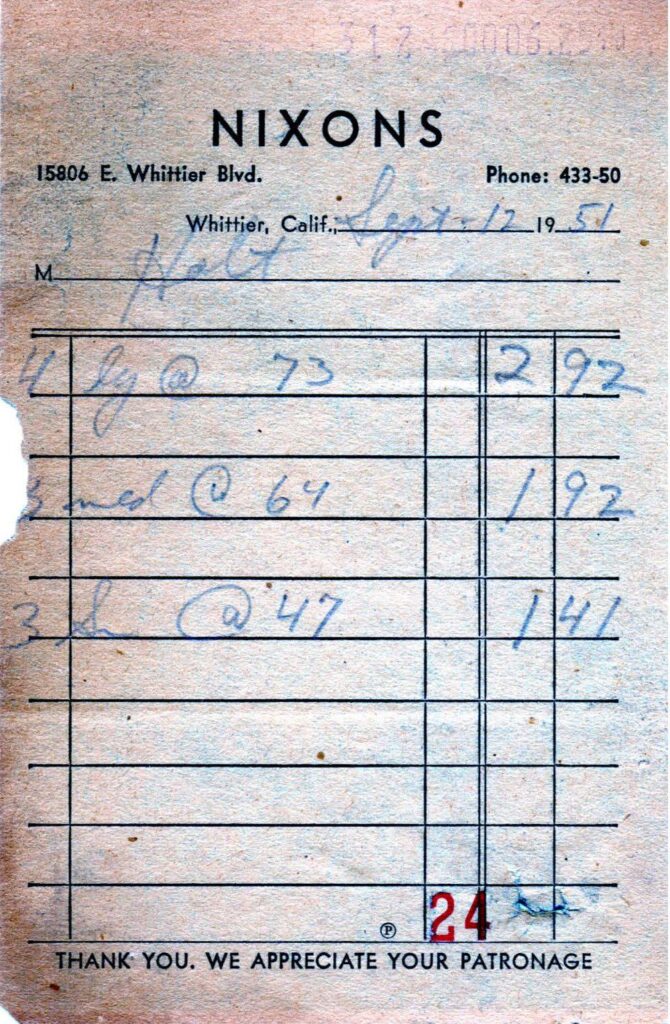 NIXONS
15806 E. Whittier Blvd. Phone: 433-50
Whittier, Calif., Sept. 12 1951
M Holt
4 lg @ 73 2 92
3 med @ 64 1 92
3 Sm @ 47 1 41
24
Ⓟ
THANK YOU. WE APPRECIATE YOUR PATRONAGE